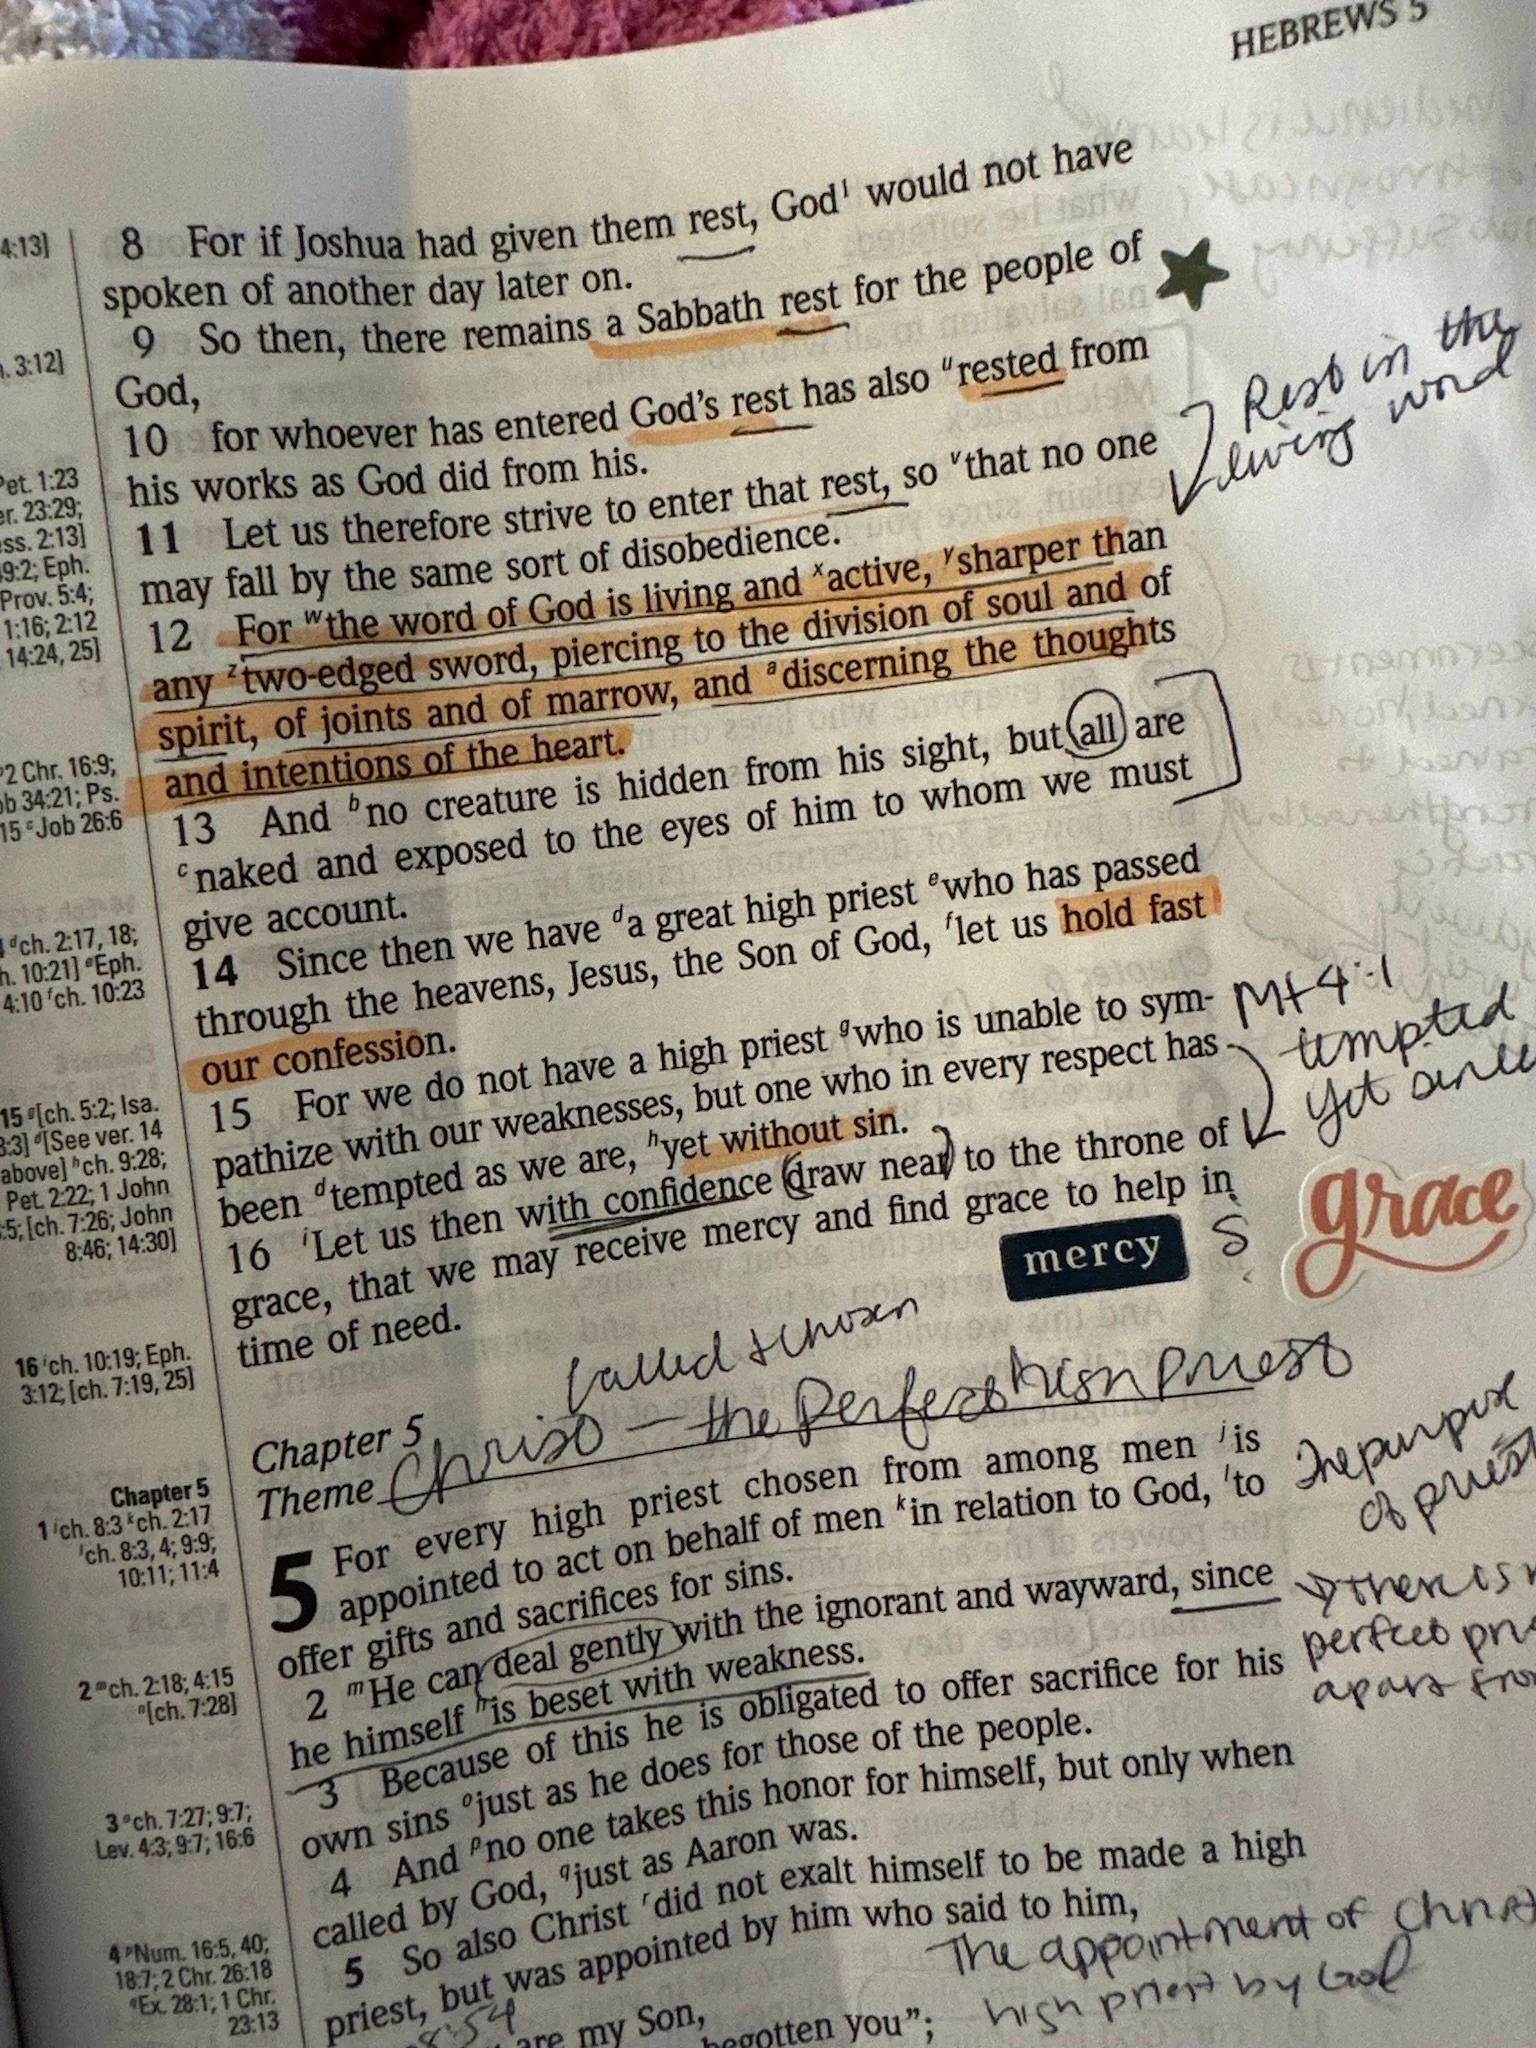 HEBREWS 5
8 For if Joshua had given them rest, God¹ would not have
spoken of another day later on.
9 So then, there remains a Sabbath rest for the people of
God,
10 for whoever has entered God's rest has also ᵘrested from
his works as God did from his.
11 Let us therefore strive to enter that rest, so ᵛthat no one
may fall by the same sort of disobedience.
12 For ʷthe word of God is living and ˣactive, ʸsharper than
any ᶻtwo-edged sword, piercing to the division of soul and of
spirit, of joints and of marrow, and ᵃdiscerning the thoughts
and intentions of the heart.
13 And ᵇno creature is hidden from his sight, but all are
ᶜnaked and exposed to the eyes of him to whom we must
give account.
14 Since then we have ᵈa great high priest ᵉwho has passed
through the heavens, Jesus, the Son of God, ᶠlet us hold fast
our confession.
15 For we do not have a high priest ᵍwho is unable to sym-
pathize with our weaknesses, but one who in every respect has
been ᵈtempted as we are, ʰyet without sin.
16 ⁱLet us then with confidence draw near to the throne of
grace, that we may receive mercy and find grace to help in
time of need.
Rest in the
living word
Mt 4:1
tempted
yet
mercy
grace
called + chosen
Chapter 5
Theme Christ — the Perfect High Priest
5 For every high priest chosen from among men ʲis
appointed to act on behalf of men ᵏin relation to God, ˡto
offer gifts and sacrifices for sins.
2 ᵐHe can deal gently with the ignorant and wayward, since
he himself ⁿis beset with weakness.
3 Because of this he is obligated to offer sacrifice for his
own sins ᵒjust as he does for those of the people.
4 And ᵖno one takes this honor for himself, but only when
called by God, ᑫjust as Aaron was.
5 So also Christ ʳdid not exalt himself to be made a high
priest, but was appointed by him who said to him,
are my Son,
begotten you”;
The purpose
of priest
there is
perfect
apart from
The appointment of Christ
high priest by God
8:54
4:13]
3:12]
Pet. 1:23
23:29;
2:13]
Eph.
Prov. 5:4;
1:16; 2:12
14:24, 25]
2 Chr. 16:9;
34:21; Ps.
15 ᶜJob 26:6
ᵈch. 2:17, 18;
10:21] ᵉEph.
4:10 ᶠch. 10:23
15 ᵍ[ch. 5:2; Isa.
ᵈ[See ver. 14
above] ʰch. 9:28;
Pet. 2:22; 1 John
[ch. 7:26; John
8:46; 14:30]
16 ⁱch. 10:19; Eph.
3:12; [ch. 7:19, 25]
Chapter 5
1 ʲch. 8:3 ᵏch. 2:17
ˡch. 8:3, 4; 9:9;
10:11; 11:4
2 ᵐch. 2:18; 4:15
ⁿ[ch. 7:28]
3 ᵒch. 7:27; 9:7;
Lev. 4:3; 9:7; 16:6
4 ᵖNum. 16:5, 40;
18:7; 2 Chr. 26:18
ᑫEx. 28:1; 1 Chr.
23:13